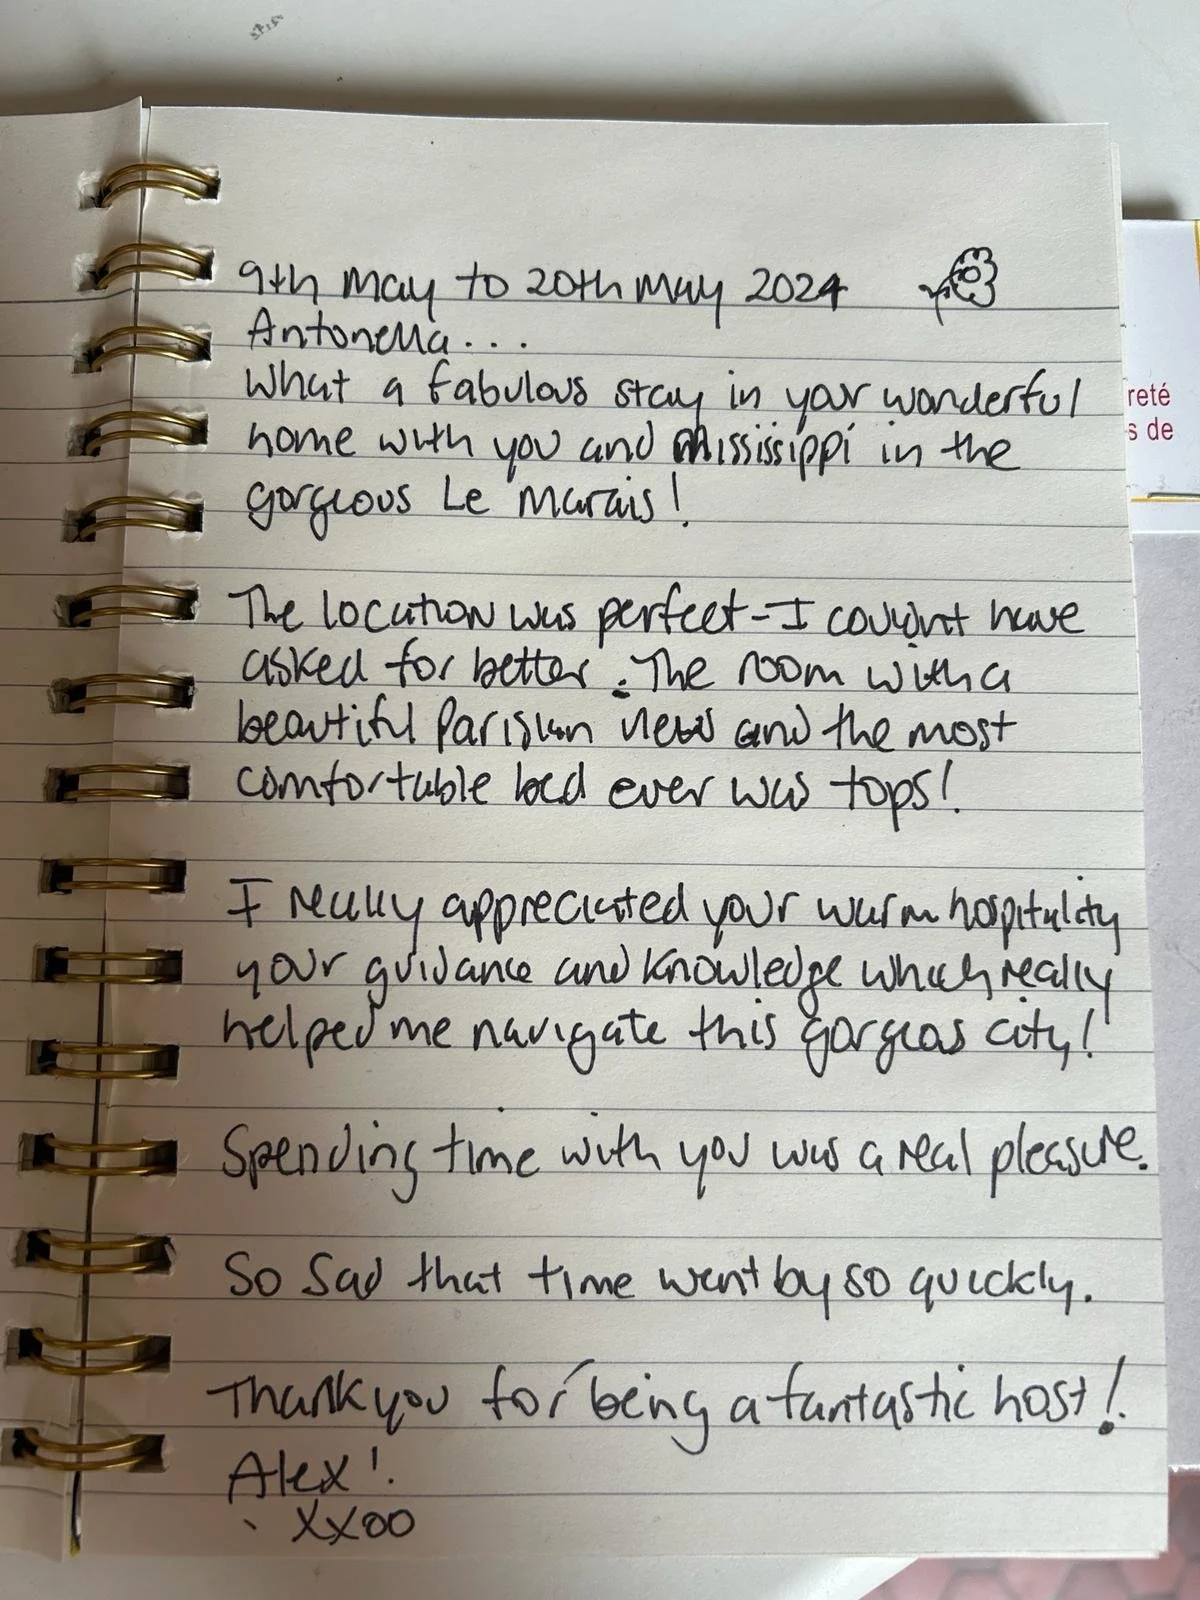 9th May to 20th May 2024
Antonella...
What a fabulous stay in your wonderful
home with you and Mississippi in the
gorgeous Le Marais!
The location was perfect - I couldn't have
asked for better. The room with a
beautiful Parisian views and the most
comfortable bed ever was tops!
I really appreciated your warm hospitality
your guidance and knowledge which really
helped me navigate this gorgeos city!
Spending time with you was a real pleasure.
So Sad that time went by so quickly.
Thank you for being a fantastic host!
Alex!
xxoo
reté
s de